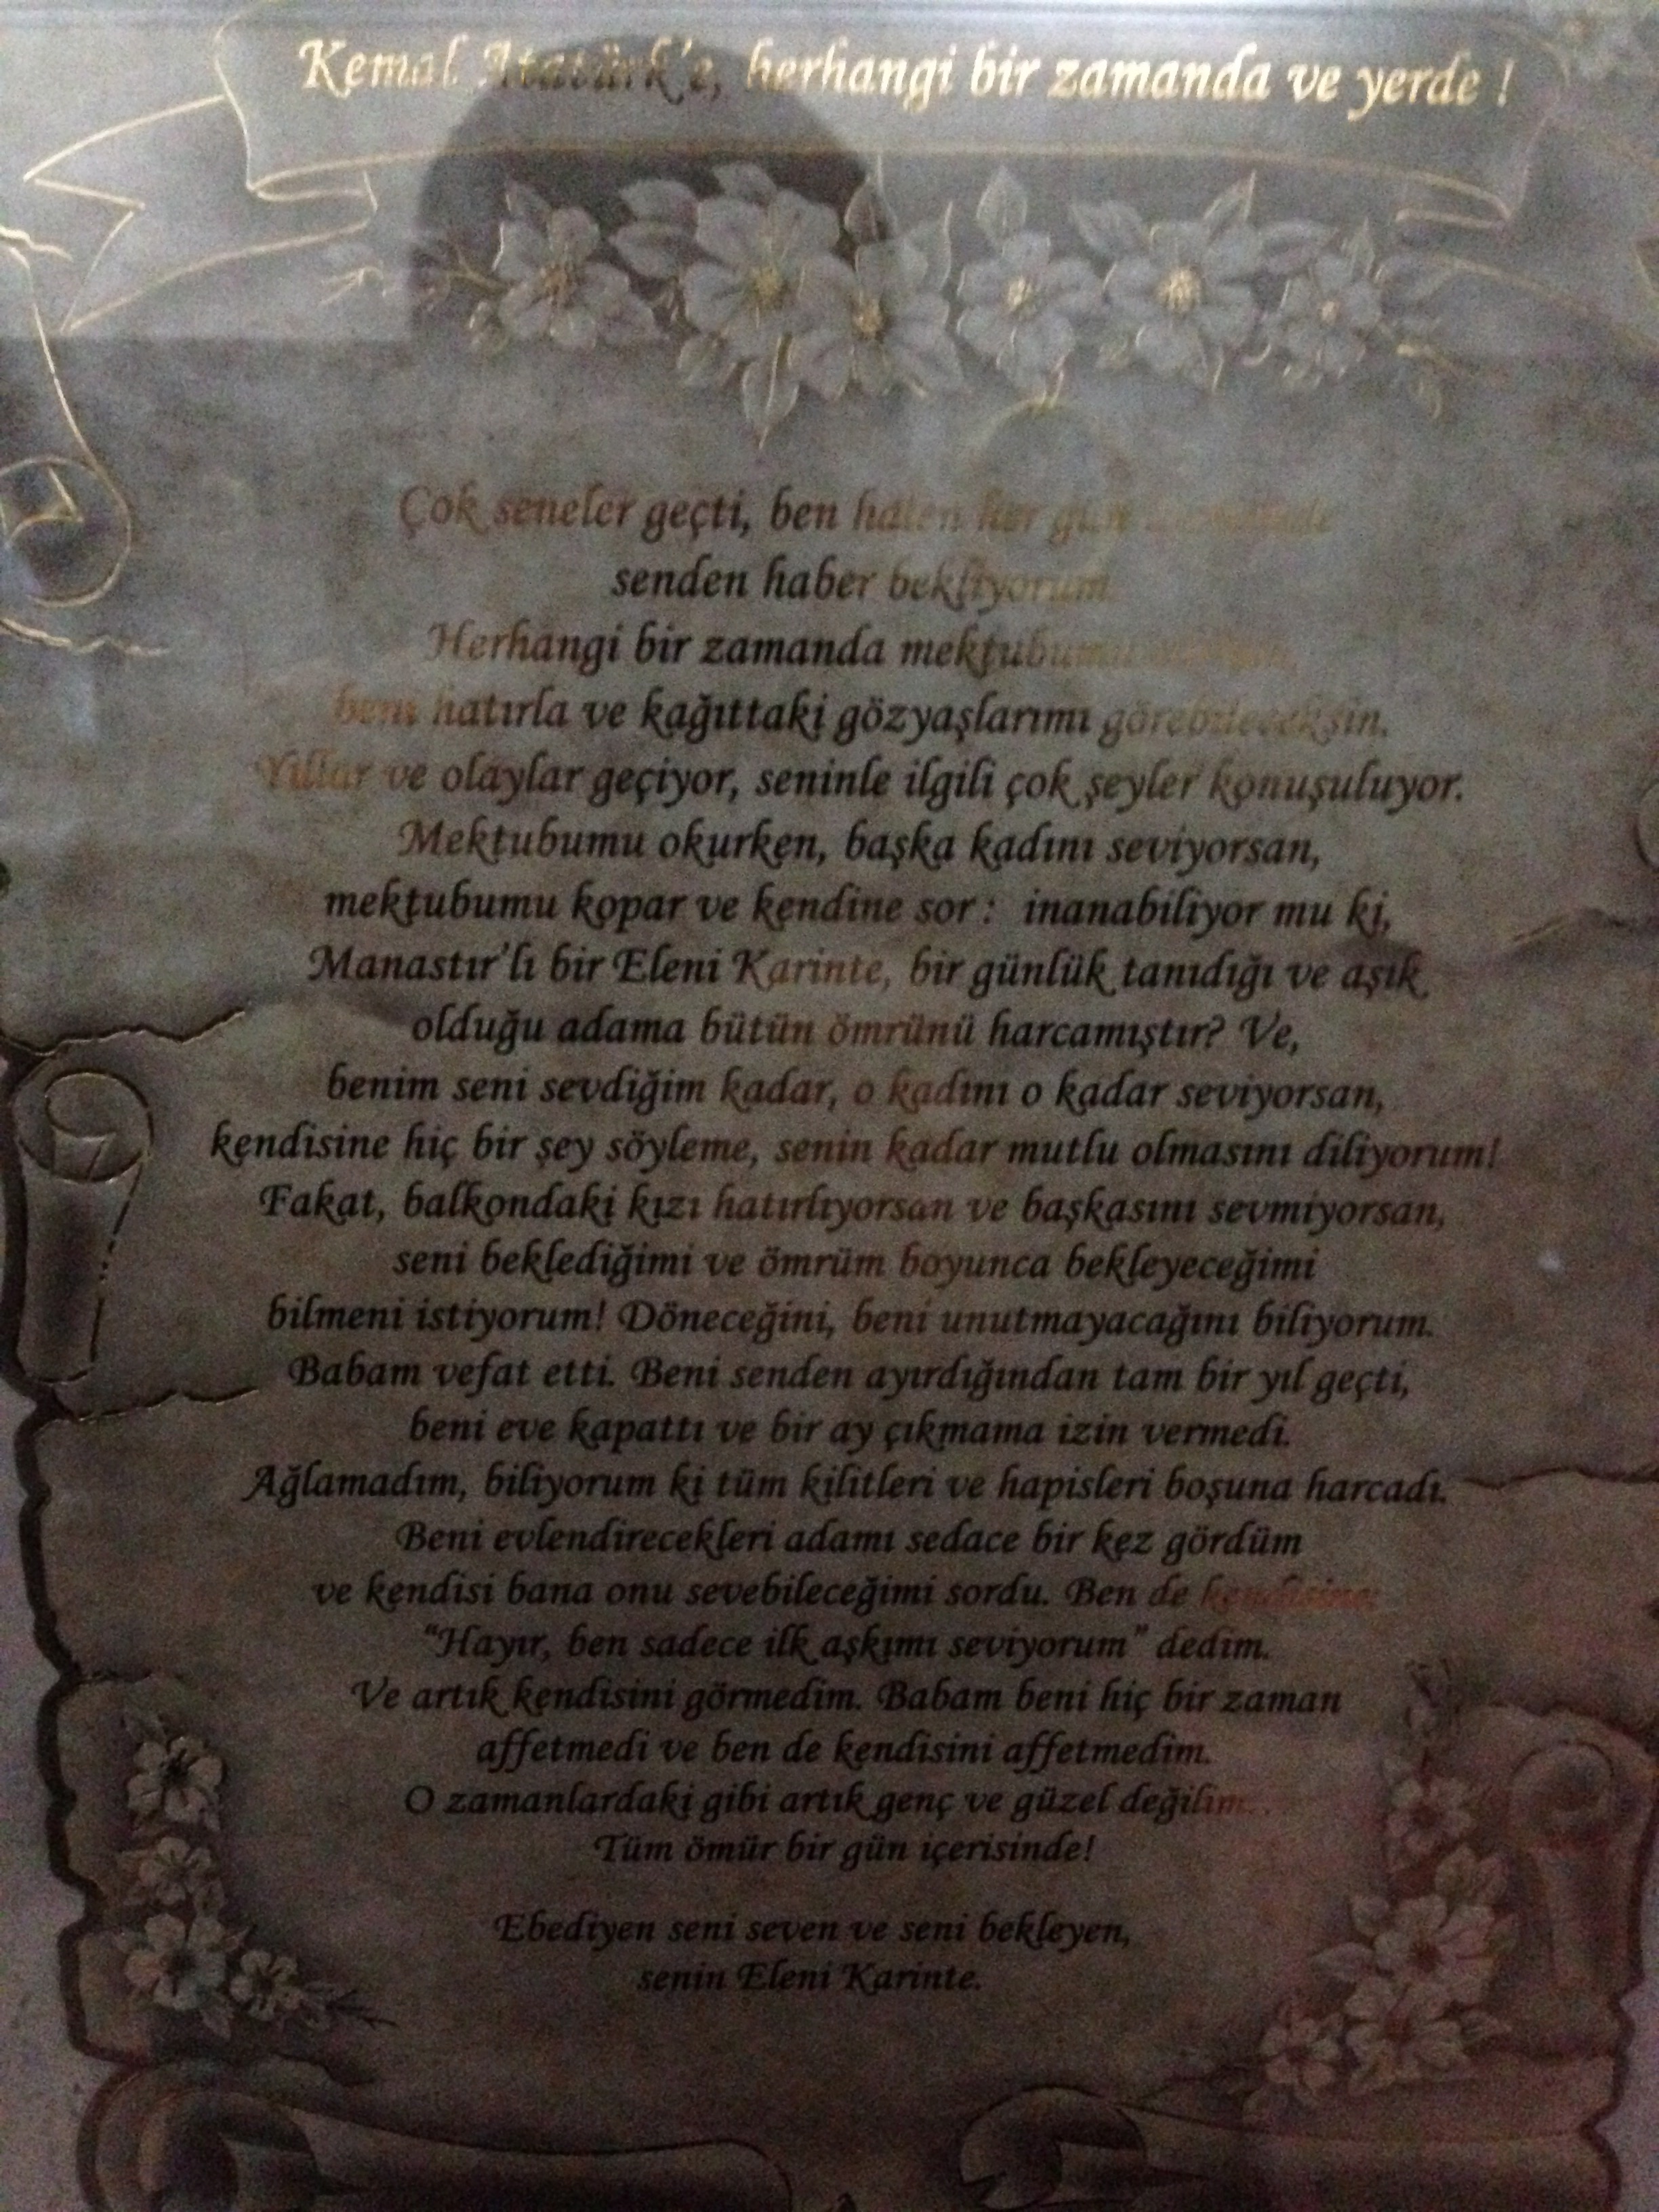 Kemal Atatürk'e, herhangi bir zamanda ve yerde !
Çok seneler geçti, ben halen her gün
senden haber bekliyorum
Herhangi bir zamanda mektubumu
beni hatırla ve kağıttaki gözyaşlarımı görebileceksin.
Yıllar ve olaylar geçiyor, seninle ilgili çok şeyler konuşuluyor.
Mektubumu okurken, başka kadını seviyorsan,
mektubumu kopar ve kendine sor : inanabiliyor mu ki,
Manastır'lı bir Eleni Karinte, bir günlük tanıdığı ve aşık
olduğu adama bütün ömrünü harcamıştır? Ve,
benim seni sevdiğim kadar, o kadını o kadar seviyorsan,
kendisine hiç bir şey söyleme, senin kadar mutlu olmasını diliyorum!
Fakat, balkondaki kızı hatırlıyorsan ve başkasını sevmiyorsan,
seni beklediğimi ve ömrüm boyunca bekleyeceğimi
bilmeni istiyorum! Döneceğini, beni unutmayacağını biliyorum.
Babam vefat etti. Beni senden ayırdığından tam bir yıl geçti,
beni eve kapattı ve bir ay çıkmama izin vermedi.
Ağlamadım, biliyorum ki tüm kilitleri ve hapisleri boşuna harcadı.
Beni evlendirecekleri adamı sedace bir kez gördüm
ve kendisi bana onu sevebileceğimi sordu. Ben de kendisine:
“Hayır, ben sadece ilk aşkımı seviyorum” dedim.
Ve artık kendisini görmedim. Babam beni hiç bir zaman
affetmedi ve ben de kendisini affetmedim.
O zamanlardaki gibi artık genç ve güzel değilim...
Tüm ömür bir gün içerisinde!
Ebediyen seni seven ve seni bekleyen,
senin Eleni Karinte.